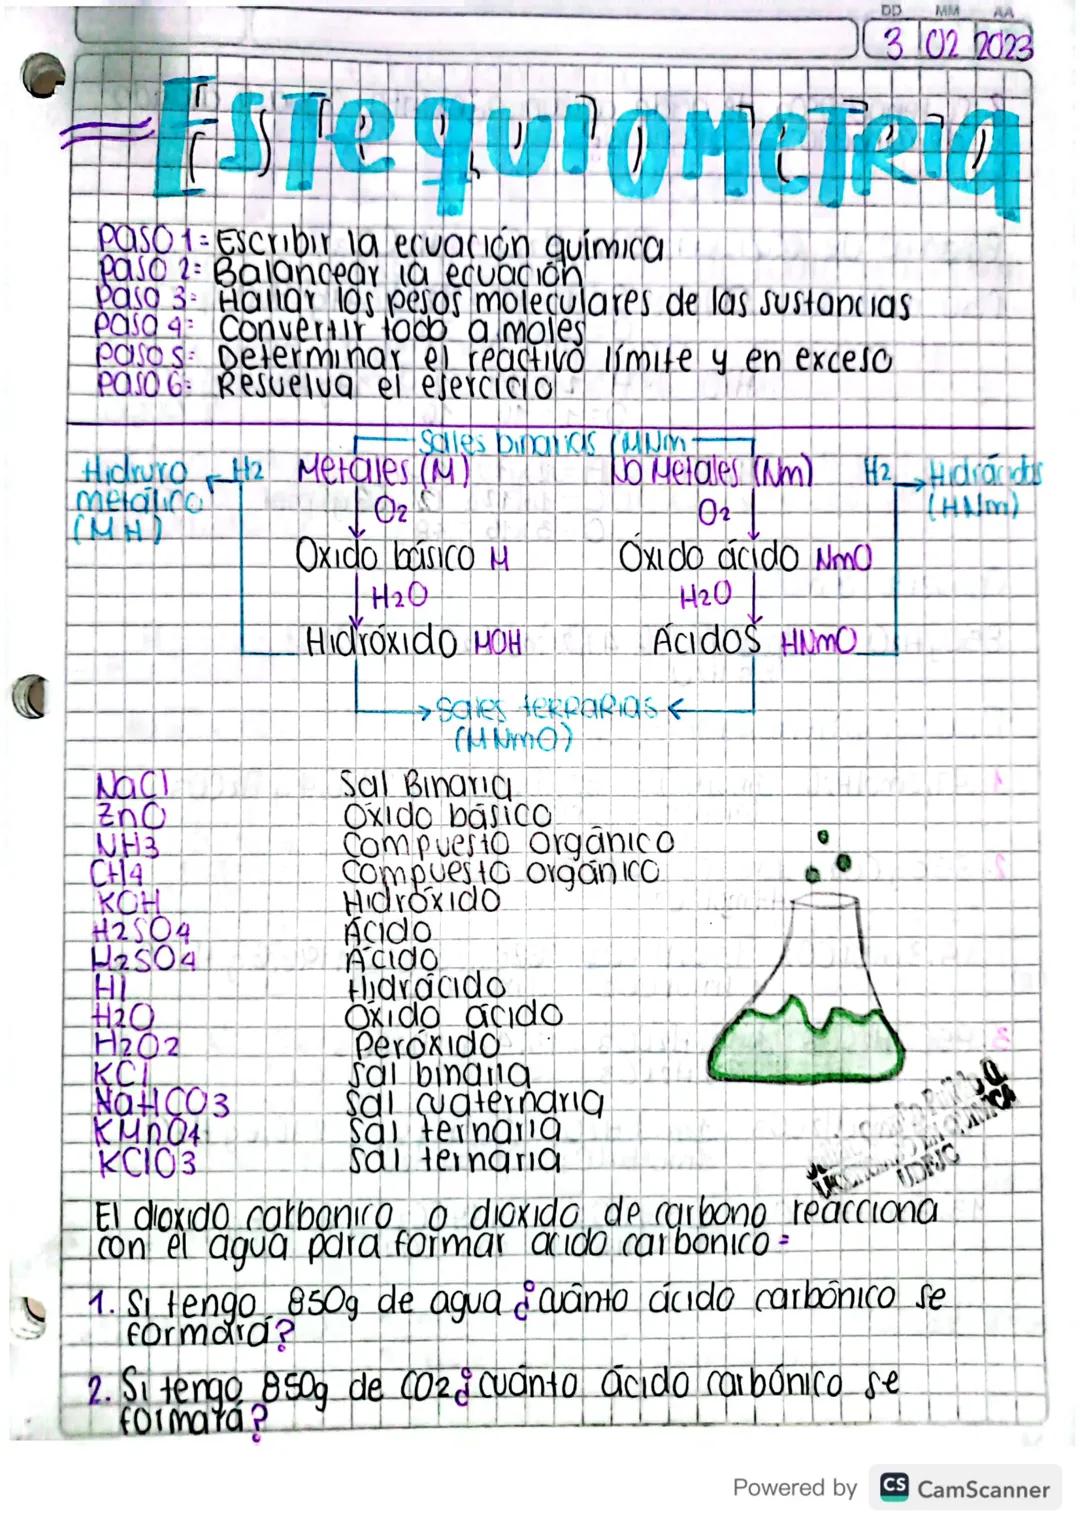 DD MM AA
3 02 2023
Estequiometria
Paso 1: Escribir la ecuación química
Paso 2: Balancear la ecuación
Paso 3: Hallar los pesos moleculares de las sustancias
Paso 4: Convertir todo a moles
Paso 5: Determinar el reactivo límite y en exceso
Paso 6: Resuelva el ejercicio
Sales binarias (MNm
Hidruro H2 Metales (M) No Metales (Nm) H2 Hidrácidos
metálico O2 O2 (HNm)
(MH)
Oxido básico M Óxido ácido NmO
H2O H2O
Hidróxido MOH Ácidos HNmO
Sales terrarias
(MNmO)
NaCl Sal Binaria
ZnO Óxido básico
NH3 Compuesto orgánico
CH4 Compuesto orgánico
KOH Hidróxido
H2SO4 Ácido
H2SO4 Ácido
HI Hidrácido
H2O Óxido ácido
H2O2 Peróxido
KCl Sal binaria
NaHCO3 Sal cuaternaria
KMnO4 Sal ternaria
KClO3 Sal ternaria
UDFJC
El dioxido carbonico o dioxido de carbono reacciona
con el agua para formar acido carbonico:
1. Si tengo 850g de agua ¿cuánto ácido carbónico se
formará?
2. Si tengo 850g de CO2 ¿cuánto ácido carbónico se
formará?
Powered by CS CamScanner